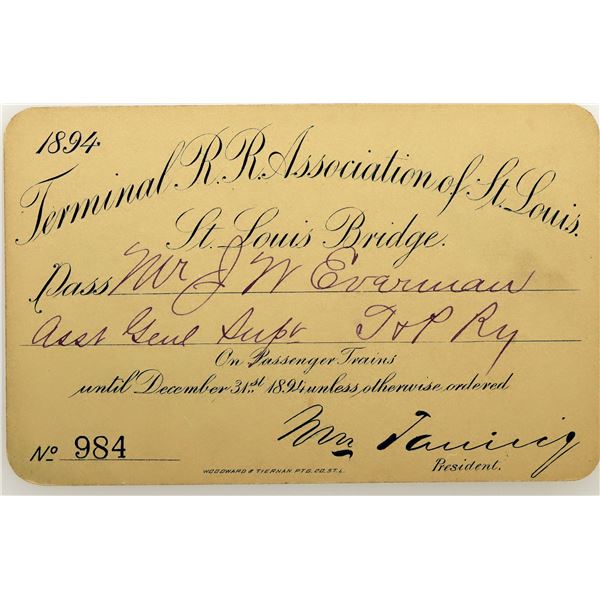 1894
Terminal R. R. Association of St. Louis.
St. Louis Bridge.
Pass Mr J W Everman
Asst Genl Supt T & P Ry
On Passenger Trains
until December 31st 1894 unless otherwise ordered
No 984
Wm Taussig
President.
WOODWARD & TIERNAN PTG. CO. ST. L.